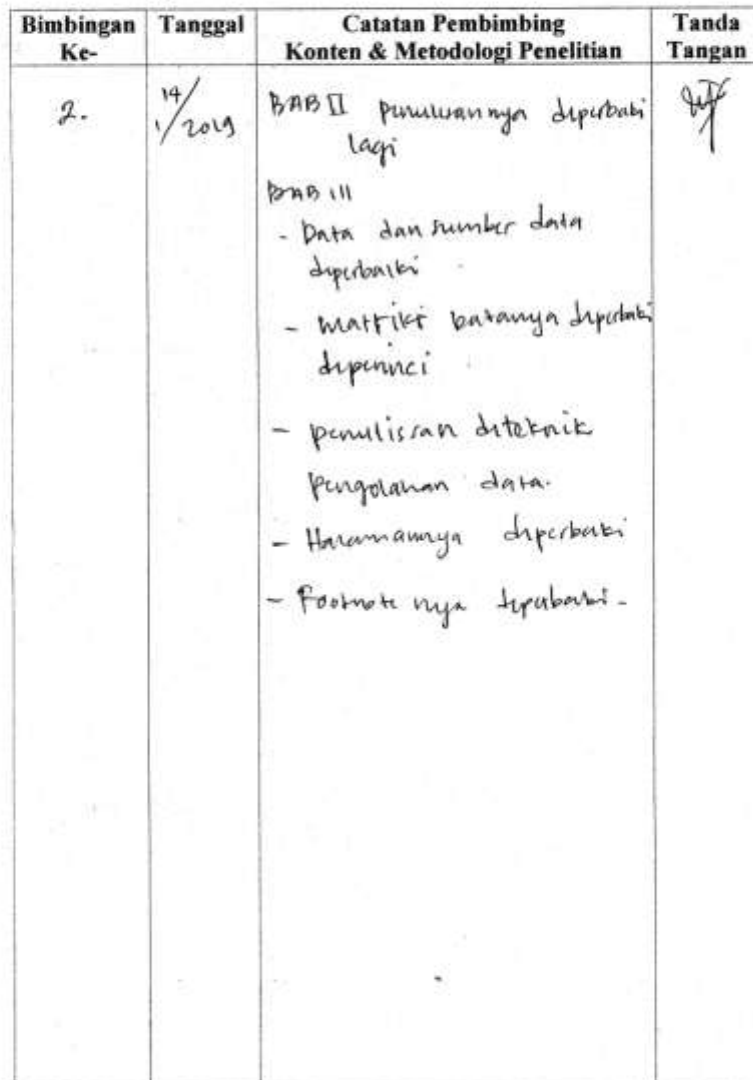 Bimbingan Ke-
Tanggal
Catatan Pembimbing
Konten & Metodologi Penelitian
Tanda Tangan
2.
14/1/2019
BAB II penulisannya diperbaiki
lagi
BAB III
- Data dan sumber data
diperbaiki
- diperbaiki
diperinci
- penulissan diteknik
pengolahan data.
- Halamannya diperbaiki
- Footnote nya diperbaiki -